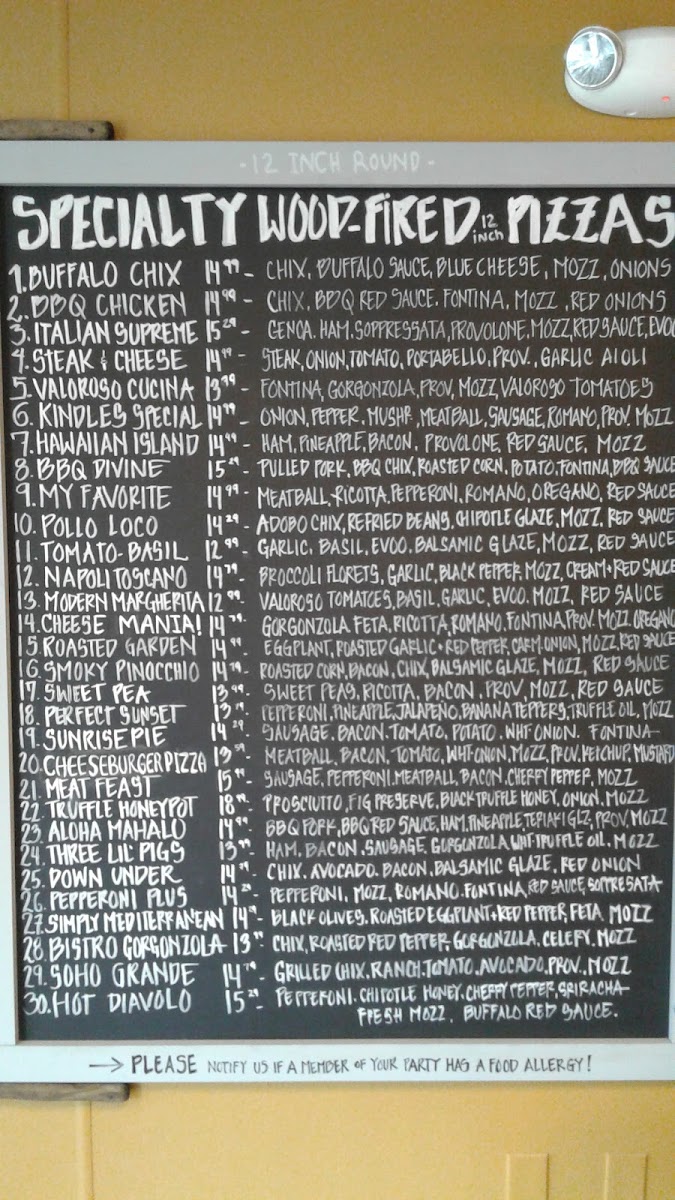 -12 INCH ROUND-
SPECIALTY WOOD-FIRED 12 inch PIZZAS
1. BUFFALO CHIX 14.99 - CHIX, BUFFALO SAUCE, BLUE CHEESE, MOZZ, ONIONS
2. BBQ CHICKEN 14.99 - CHIX, BBQ RED SAUCE, FONTINA, MOZZ, RED ONIONS
3. ITALIAN SUPREME 15.29 - GENOA, HAM, SOPPRESSATA, PROVOLONE, MOZZ, RED SAUCE, EVOO
4. STEAK & CHEESE 14.99 - STEAK, ONION, TOMATO, PORTABELLO, PROV., GARLIC AIOLI
5. VALOROSO CUCINA 13.99 - FONTINA, GORGONZOLA, PROV, MOZZ, VALOROSO TOMATOES
6. KINDLES SPECIAL 14.99 - ONION, PEPPER, MUSHR, MEATBALL, SAUSAGE, ROMANO, PROV. MOZZ
7. HAWAIIAN ISLAND 14.99 - HAM, PINEAPPLE, BACON, PROVOLONE, RED SAUCE, MOZZ
8. BBQ DIVINE 15. - PULLED PORK, BBQ CHIX, ROASTED CORN, POTATO, FONTINA, BBQ SAUCE
9. MY FAVORITE 14.99 - MEATBALL, RICOTTA, PEPPERONI, ROMANO, OREGANO, RED SAUCE
10. POLLO LOCO 14.29 - ADOBO CHIX, REFRIED BEANS, CHIPOTLE GLAZE, MOZZ, RED SAUCE
11. TOMATO-BASIL 12.99 - GARLIC, BASIL, EVOO, BALSAMIC GLAZE, MOZZ, RED SAUCE
12. NAPOLI TOSCANO 14.79 - BROCCOLI FLORETS, GARLIC, BLACK PEPPER, MOZZ, CREAM + RED SAUCE
13. MODERN MARGHERITA 12.99 - VALOROSO TOMATOES, BASIL, GARLIC, EVOO, MOZZ, RED SAUCE
14. CHEESE MANIA! 14.79 - GORGONZOLA, FETA, RICOTTA, ROMANO, FONTINA, PROV. MOZZ OREGANO
15. ROASTED GARDEN 14.99 - EGGPLANT, ROASTED GARLIC + RED PEPPER, CARM. ONION, MOZZ, RED SAUCE
16. SMOKY PINOCCHIO 14.79 - ROASTED CORN, BACON, CHIX, BALSAMIC GLAZE, MOZZ, RED SAUCE
17. SWEET PEA 13.99 - SWEET PEAS, RICOTTA, BACON, PROV, MOZZ, RED SAUCE
18. PERFECT SUNSET 13. - PEPPERONI, PINEAPPLE, JALAPENO, BANANA PEPPERS, TRUFFLE OIL, MOZZ
19. SUNRISE PIE 14.29 - SAUSAGE, BACON, TOMATO, POTATO, WHT. ONION, FONTINA
20. CHEESEBURGER PIZZA 13.59 - MEATBALL, BACON, TOMATO, WHT-ONION, MOZZ, PROV, KETCHUP, MUSTARD
21. MEAT FEAST 15. - SAUSAGE, PEPPERONI, MEATBALL, BACON, CHERRY PEPPER, MOZZ
22. TRUFFLE HONEYPOT 18. - PROSCIUTTO, FIG PRESERVE, BLACK TRUFFLE HONEY, ONION, MOZZ
23. ALOHA MAHALO 14.99 - BBQ PORK, BBQ RED SAUCE, HAM, PINEAPPLE, TERIAKI GLZ, PROV, MOZZ
24. THREE LIL' PIGS 13.99 - HAM, BACON, SAUSAGE, GORGONZOLA, WHT TRUFFLE OIL, MOZZ
25. DOWN UNDER 14. - CHIX, AVOCADO, BACON, BALSAMIC GLAZE, RED ONION
26. PEPPERONI PLUS 14.29 - PEPPERONI, MOZZ, ROMANO, FONTINA, RED SAUCE, SOPPRESATA
27. SIMPLY MEDITERRANEAN 14. - BLACK OLIVES, ROASTED EGGPLANT + RED PEPPER, FETA, MOZZ
28. BISTRO GORGONZOLA 13. - CHIX, ROASTED RED PEPPER, GORGONZOLA, CELERY, MOZZ
29. SOHO GRANDE 14.79 - GRILLED CHIX, RANCH, TOMATO, AVOCADO, PROV., MOZZ
30. HOT DIAVOLO 15.29 - PEPPERONI, CHIPOTLE HONEY, CHERRY PEPPER, SRIRACHA
FRESH MOZZ, BUFFALO RED SAUCE.
→ PLEASE NOTIFY US IF A MEMBER OF YOUR PARTY HAS A FOOD ALLERGY!